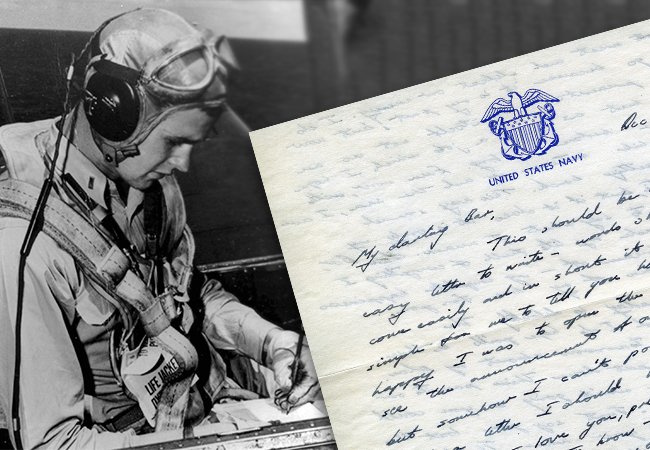 UNITED STATES NAVY
Dec
My darling Bar,
This should be
easy letter to write — words sh
come easily and in short it
simple for me to tell you h
happy I was to open the
see the announcement of o
but somehow I can't po
letter I should
love you, pre
I know
LIFE JACKET